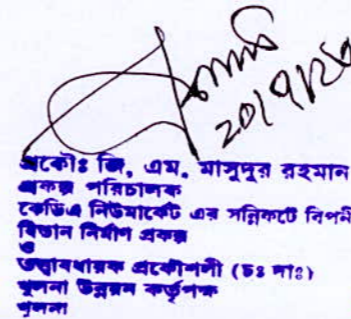 ২০/৭/২৩
প্রকৌঃ জি, এম. মাসুদুর রহমান
প্রকল্প পরিচালক
কেডিএ নিউমার্কেট এর সন্নিকটে বিপনী
বিতান নির্মাণ প্রকল্প
ও
তত্ত্বাবধায়ক প্রকৌশলী (চঃ দাঃ)
খুলনা উন্নয়ন কর্তৃপক্ষ
খুলনা